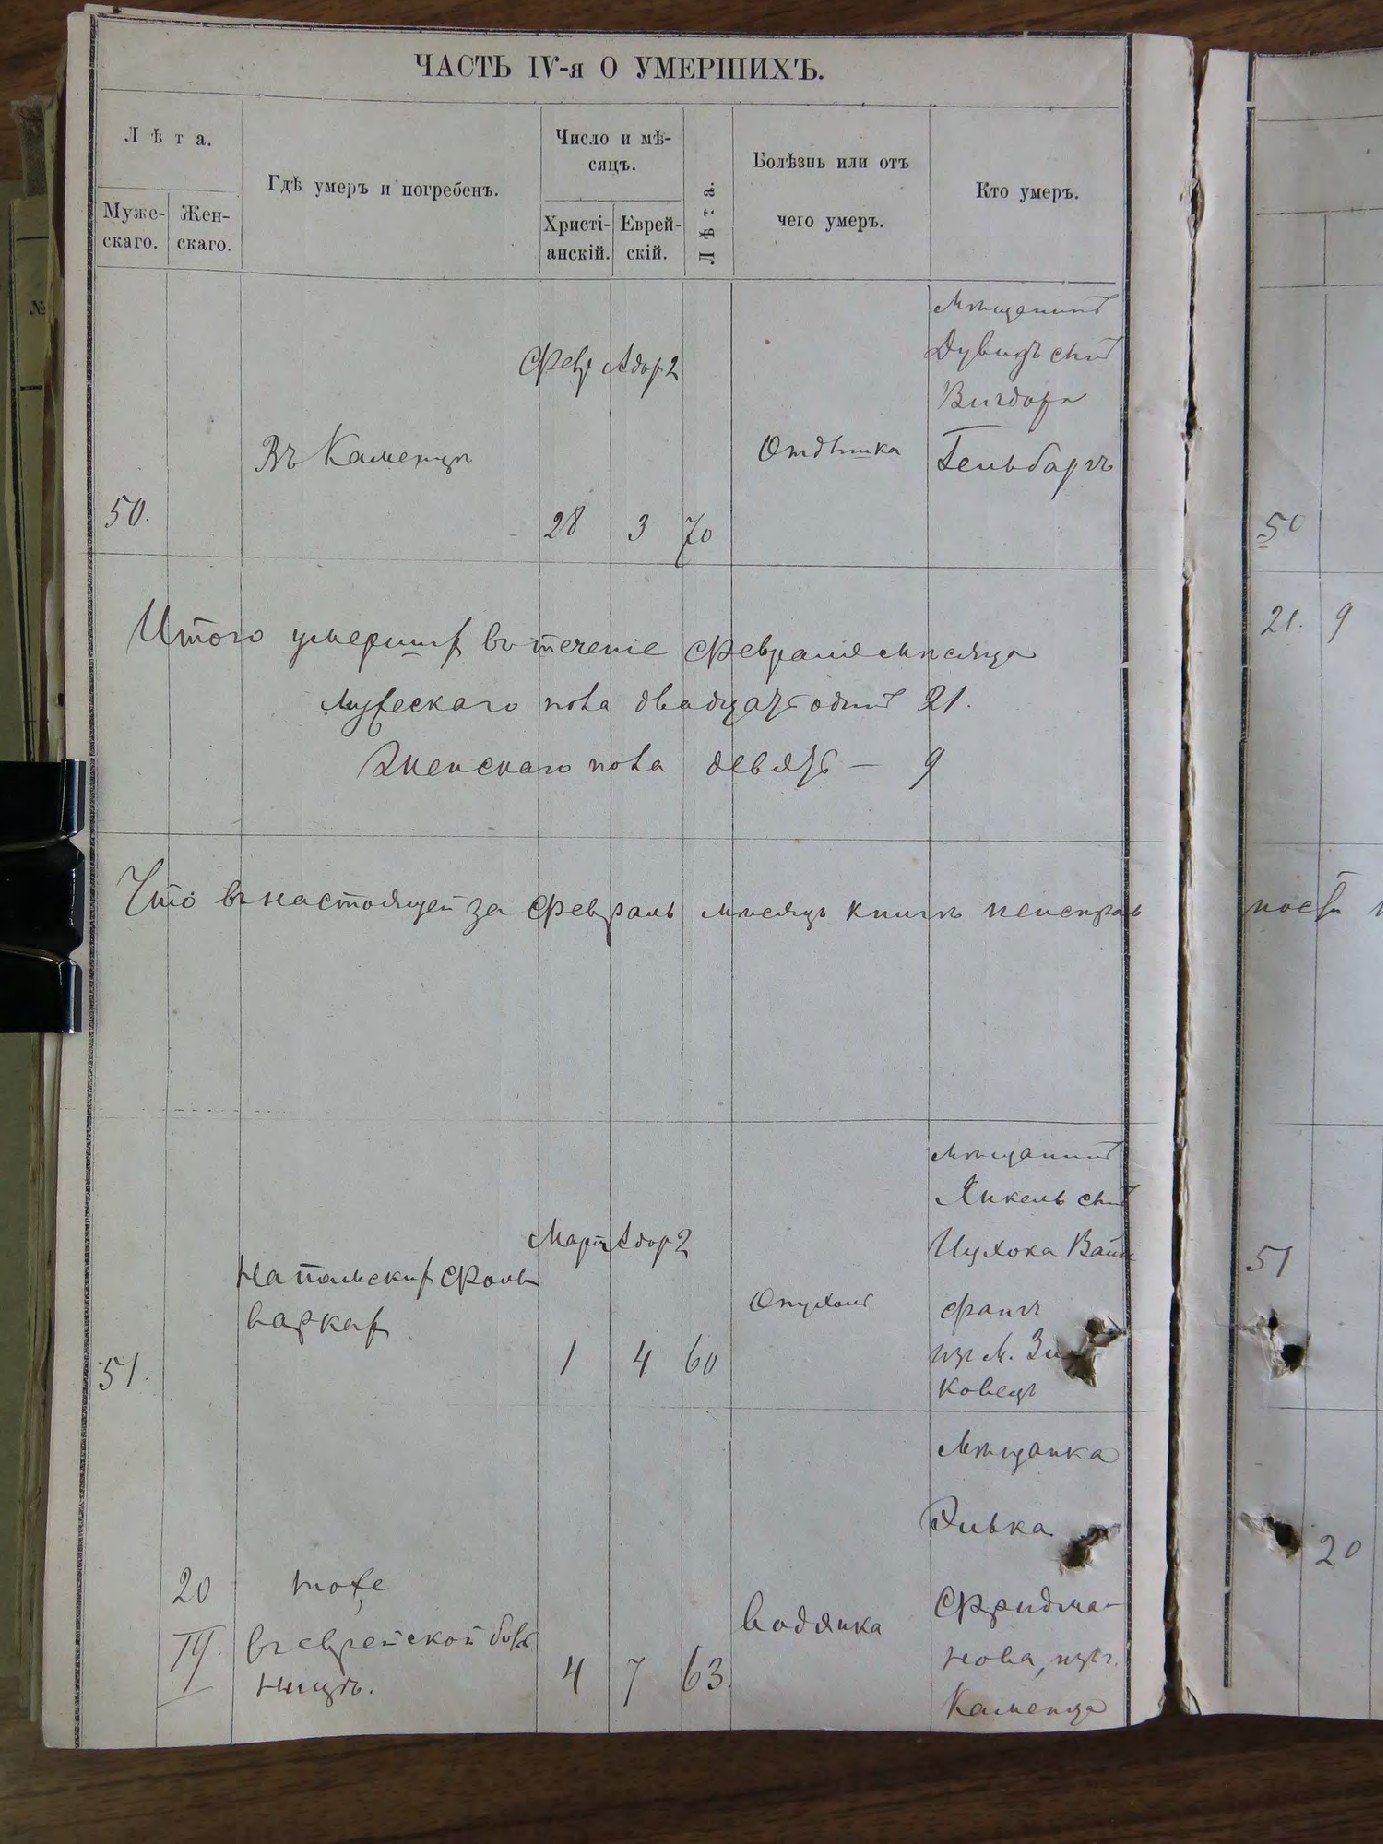 ЧАСТЬ IV-я О УМЕРШИХЪ.
Лѣта.
Муже-
скаго.
Жен-
скаго.
Гдѣ умеръ и погребенъ.
Число и мѣ-
сяцъ.
Христі-
анскій.
Еврей-
скій.
Лѣта.
Болѣзнь или отъ
чего умеръ.
Кто умеръ.
50.
Въ Каменцѣ
Февр Адор 2
28 3 70
Отдышка
Мѣщанинъ
Дувидъ сынъ
Вигдора
Гельбаръ
50
Итого умершихъ въ теченіе Февраля мѣсяца
мужескаго пола двадцать одинъ 21.
Женскаго пола девять — 9
21. 9
Что въ настоящей за Февраль мѣсяцъ книгѣ неисправ
ност
51.
На польскихъ Фоль
варкахъ
Март Адор 2
1 4 60
Опухоль
Мѣщанинъ
Янкель сынъ
Цухока Вайн
фангъ
изъ М.
ковецъ
51
20
III
тоже
въ еврейской боль
ницѣ.
4 7 63
водянка
Мѣщанка
Ривка
Фридма-
нова, изъ г.
Каменца
20
№